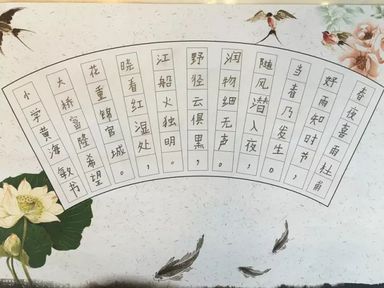 春夜喜雨杜甫
好雨知时节，
当春乃发生。
随风潜入夜，
润物细无声。
野径云俱黑，
江船火独明。
晓看红湿处，
花重锦官城。
大桥富隆希望
小学黄海敏书